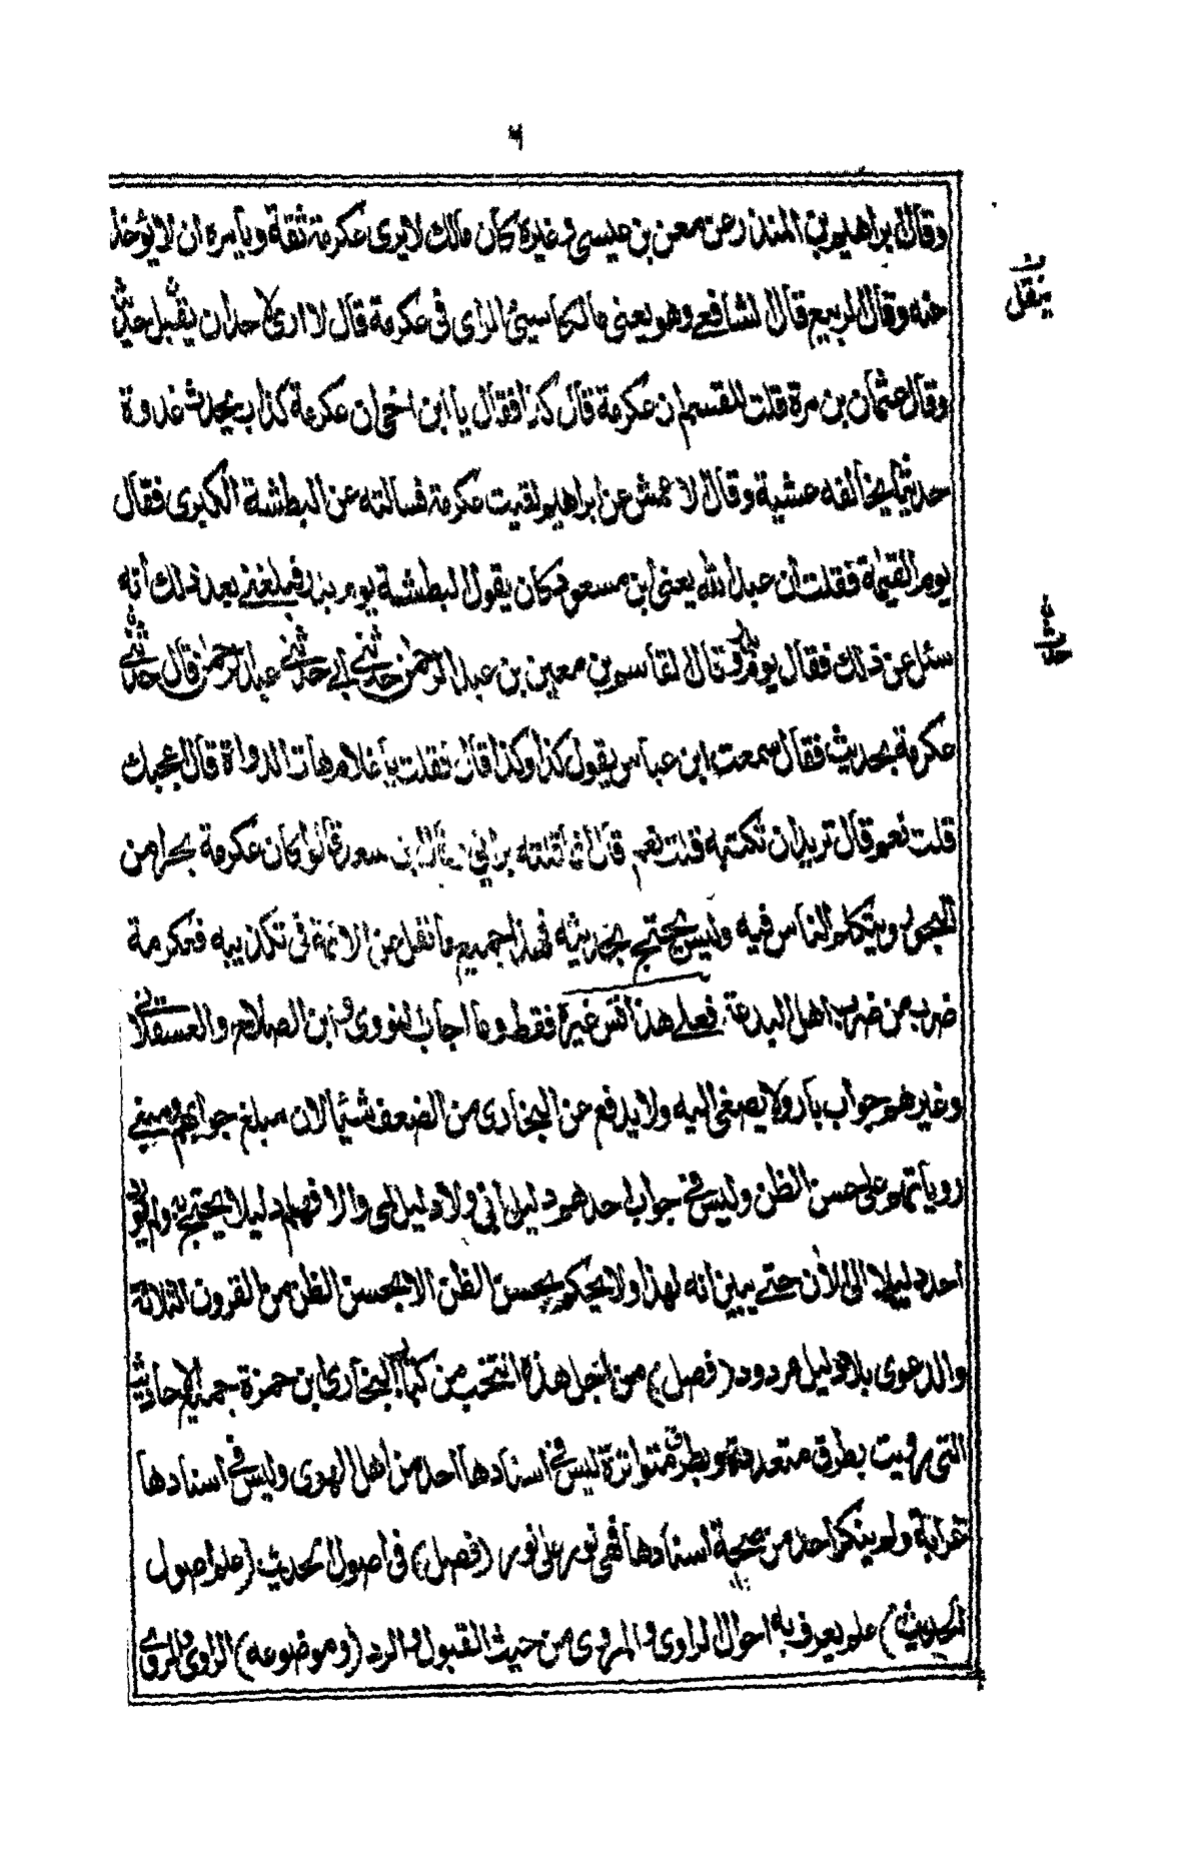 ٦
وقال ابراهيم بن المنذر عن معن بن عيسى وغيره كان مالك لا يرى عكرمة ثقة ويأمره ان لا يؤخذ
عنه وقال الربيع قال الشافعے وهو يعنى مالكا سيئ الراى فى عكرمة قال لا ارى لاحد ان يقبل حديثه
وقال عثمان بن مرة قلت للقسم ان عكرمة قال كذا فقال يا ابن اخى ان عكرمة كذاب يحدث غدوة
حديثا يخالفه عشية وقال الاعمش عن ابراهيم لقيت عكرمة فسالته عن البطشة الكبرى فقال
يوم القيمة فقلت ان عبد الله يعنى ابن مسعود كان يقول البطشة يوم بدر فبلغنے بعد ذلك انه
سئل عن ذلك فقال يوم بدر وقال القاسم بن معين بن عبد الرحمن حدثنے ابے حدثنے عبد الرحمن قال حدثنے
عكرمة بحديث فقال سمعت ابن عباس يقول كذا وكذا قال فقلت يا غلام هات الدواة قال اعجبك
قلت نعم قال تريد ان تكتبه قلت نعم قال انما قلته برائي وقال ابن سعد قالوا كان عكرمة بحرا من
البحور ويتكلم الناس فيه وليس يحتج بحديثه فهذا جميع ما نقل عن الائمة فى تكذيبه فعكرمة
ضرب من ضرب اهل البدعة فعلے هذا قس غيره فقط وما اجاب النووى وابن الصلاح والعسقلانے
وغيرهم جواب بارد لا يصغى اليه ولا يدفع عن البخارى من الضعف شيئا لان مبلغ جوابهم ومبنے
رويأتهم على حسن الظن وليس فے جواب احدهم دليل انى ولا دليل لمى والا فهلم دليلا يحتج به ولم يؤت
احد دليلا الى الأن حتے يبين انه لهذا ولا يحكم بحسن الظن الا بحسن الظن من القرون الثلاثة
والدعوى بلا دليل مردود (فصل) من اجل هذا انتخب من كتاب البخارى ابن حمزة جميع الاحاديث
التى رويت بطرق متعددة وبطرق متواترة ليس فے اسنادها احد من اهل الهوى وليس فے اسنادها
غرابة ولم ينكر احد من صحة اسنادها فهى نور على نور (فصل) فى اصول الحديث (علم اصول
الحديث) علم يعرف به احوال الراوى والمروى من حيث القبول والرد (وموضوعه) الراوى والمروى